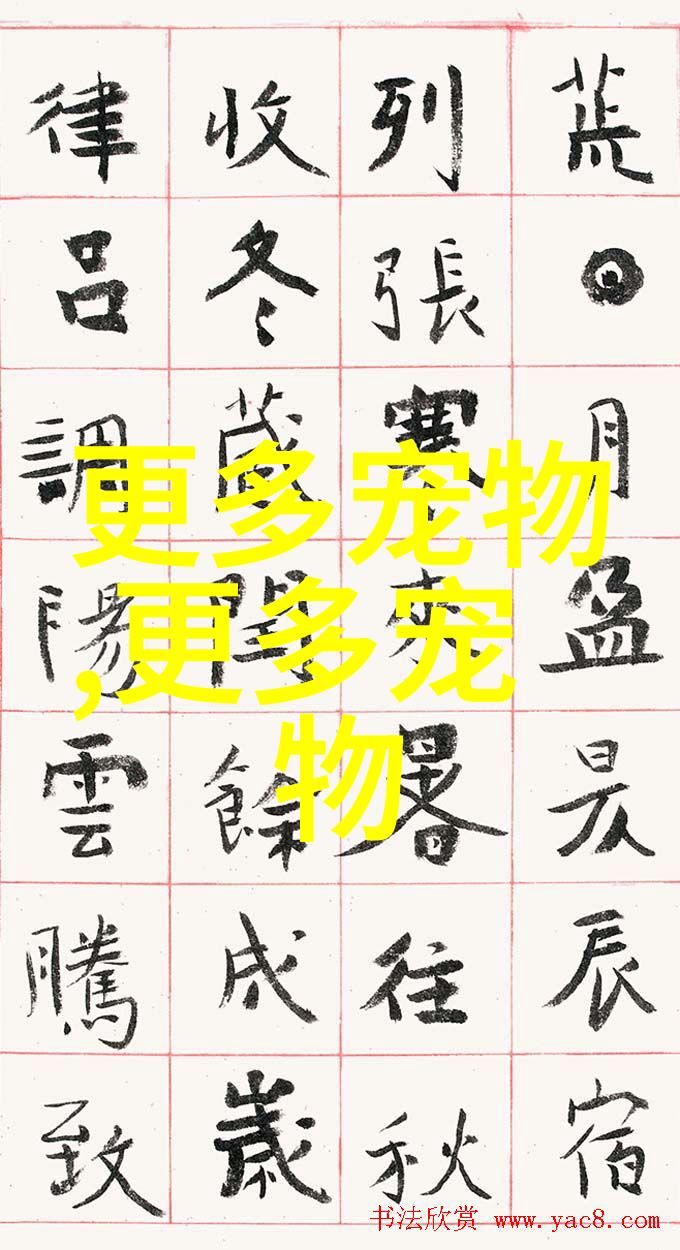 荒日月盈昃辰宿
列張寒來暑往秋
收冬藏閏餘成歲
律呂調陽雲騰致
更多宠物
,更多宠
物
书法欣赏 www.yac8.com